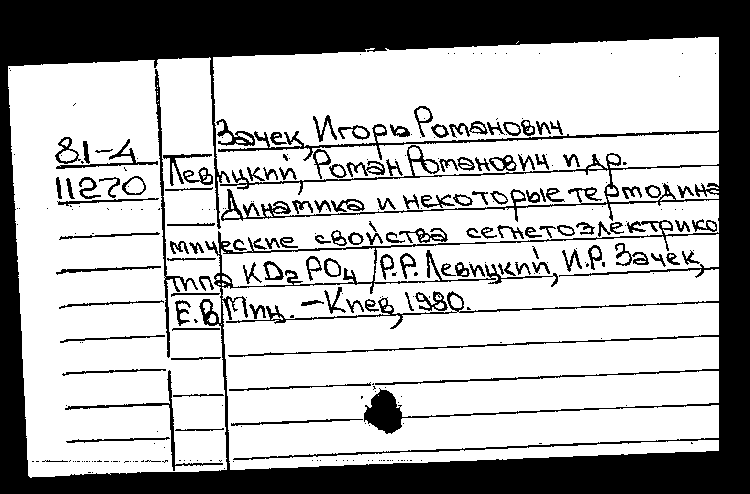 Зачек, Игорь Романович.
81-4
11270
Левицкий, Роман Романович и др.
Динамика и некоторые термодина
мические свойства сегнетоэлектрико
типа KD2PO4 / Р.Р. Левицкий, И.Р. Зачек,
Е.В. Миц. – Киев, 1980.